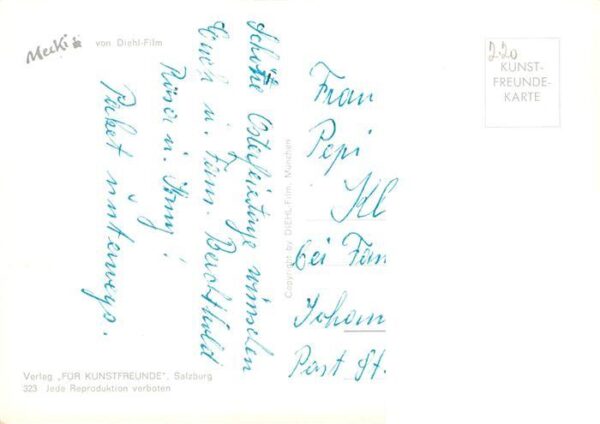 Mecki von Diehl-Film
Schöne Osterfeiertage wünschen
Euch u. Fam. Berchthold
Rosa u.
Paket unterwegs.
Copyright by DIEHL-Film, München
2.20
KUNST-
FREUNDE-
KARTE
Frau
Pepi
Kl
bei Fam
Johann
Post St.
Verlag „FÜR KUNSTFREUNDE", Salzburg
323 Jede Reproduktion verboten